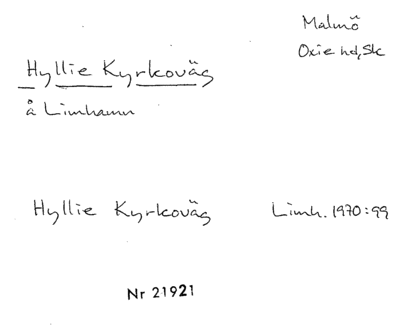 Malmö
Oxie hd, Sk
Hyllie Kyrkoväg
å Limhamn
Hyllie Kyrkoväg Limh. 1970:99
Nr 21921